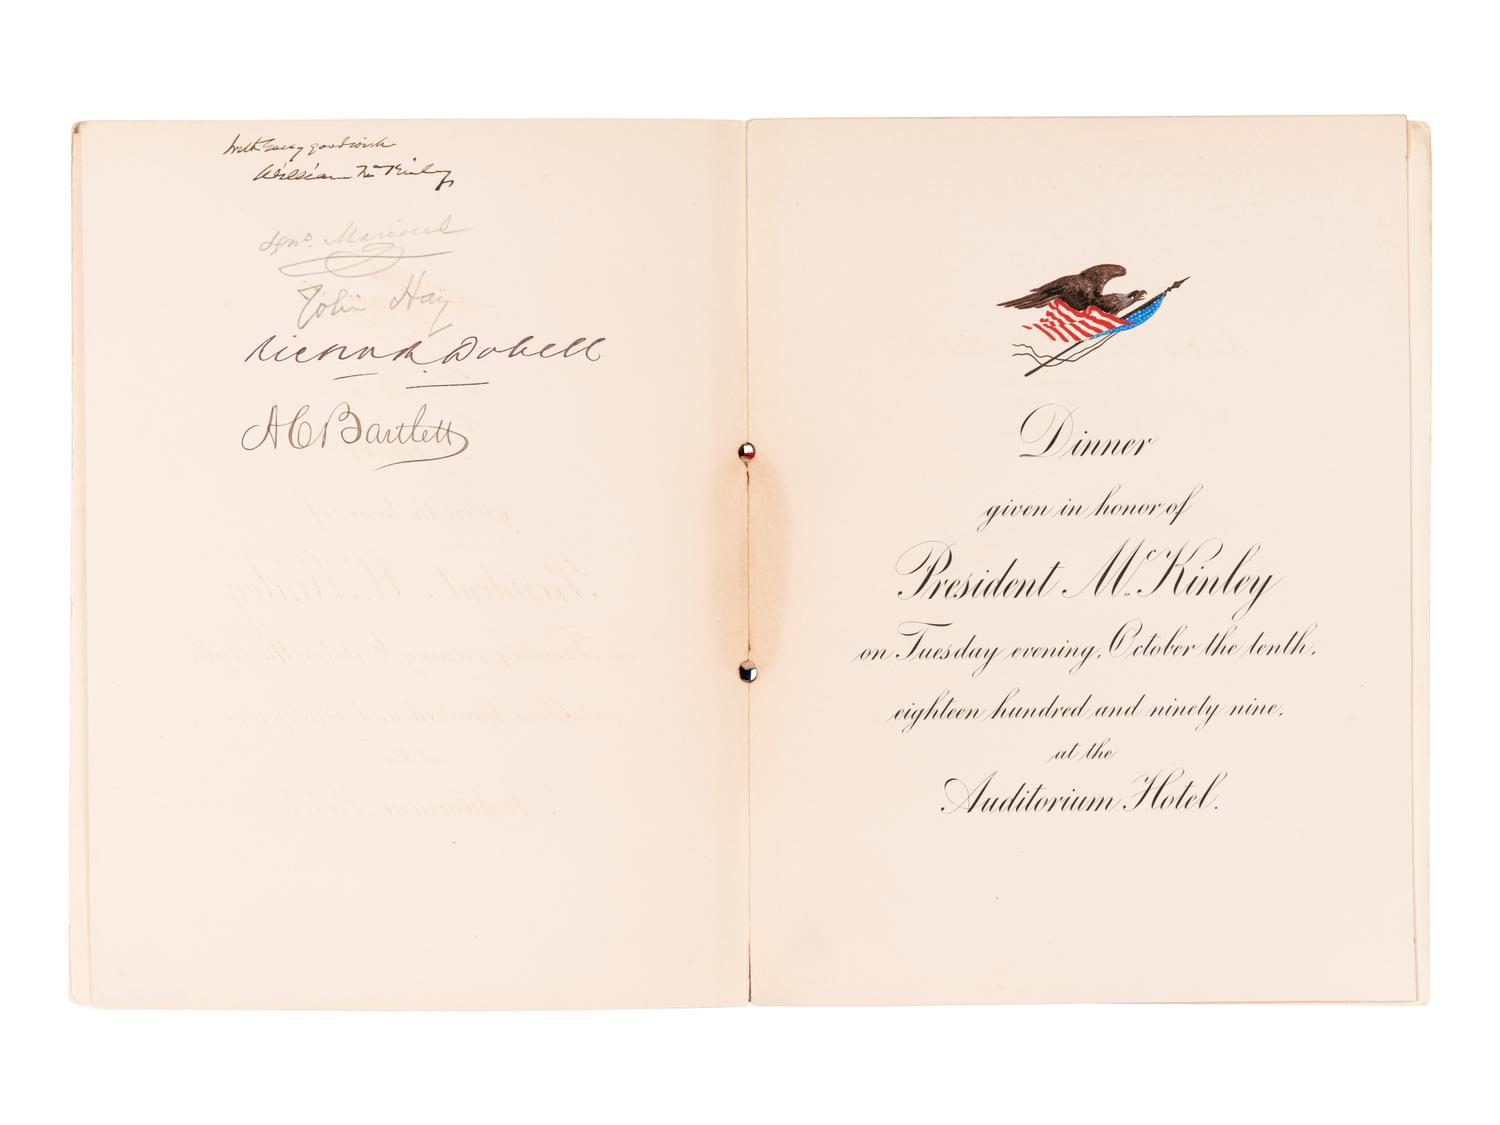 With many good wishes
William McKinley
Igno. Mariscal
John Hay
Richard R. Dobell
A C Bartlett
Dinner
given in honor of
President McKinley
on Tuesday evening, October the tenth,
eighteen hundred and ninety nine,
at the
Auditorium Hotel.